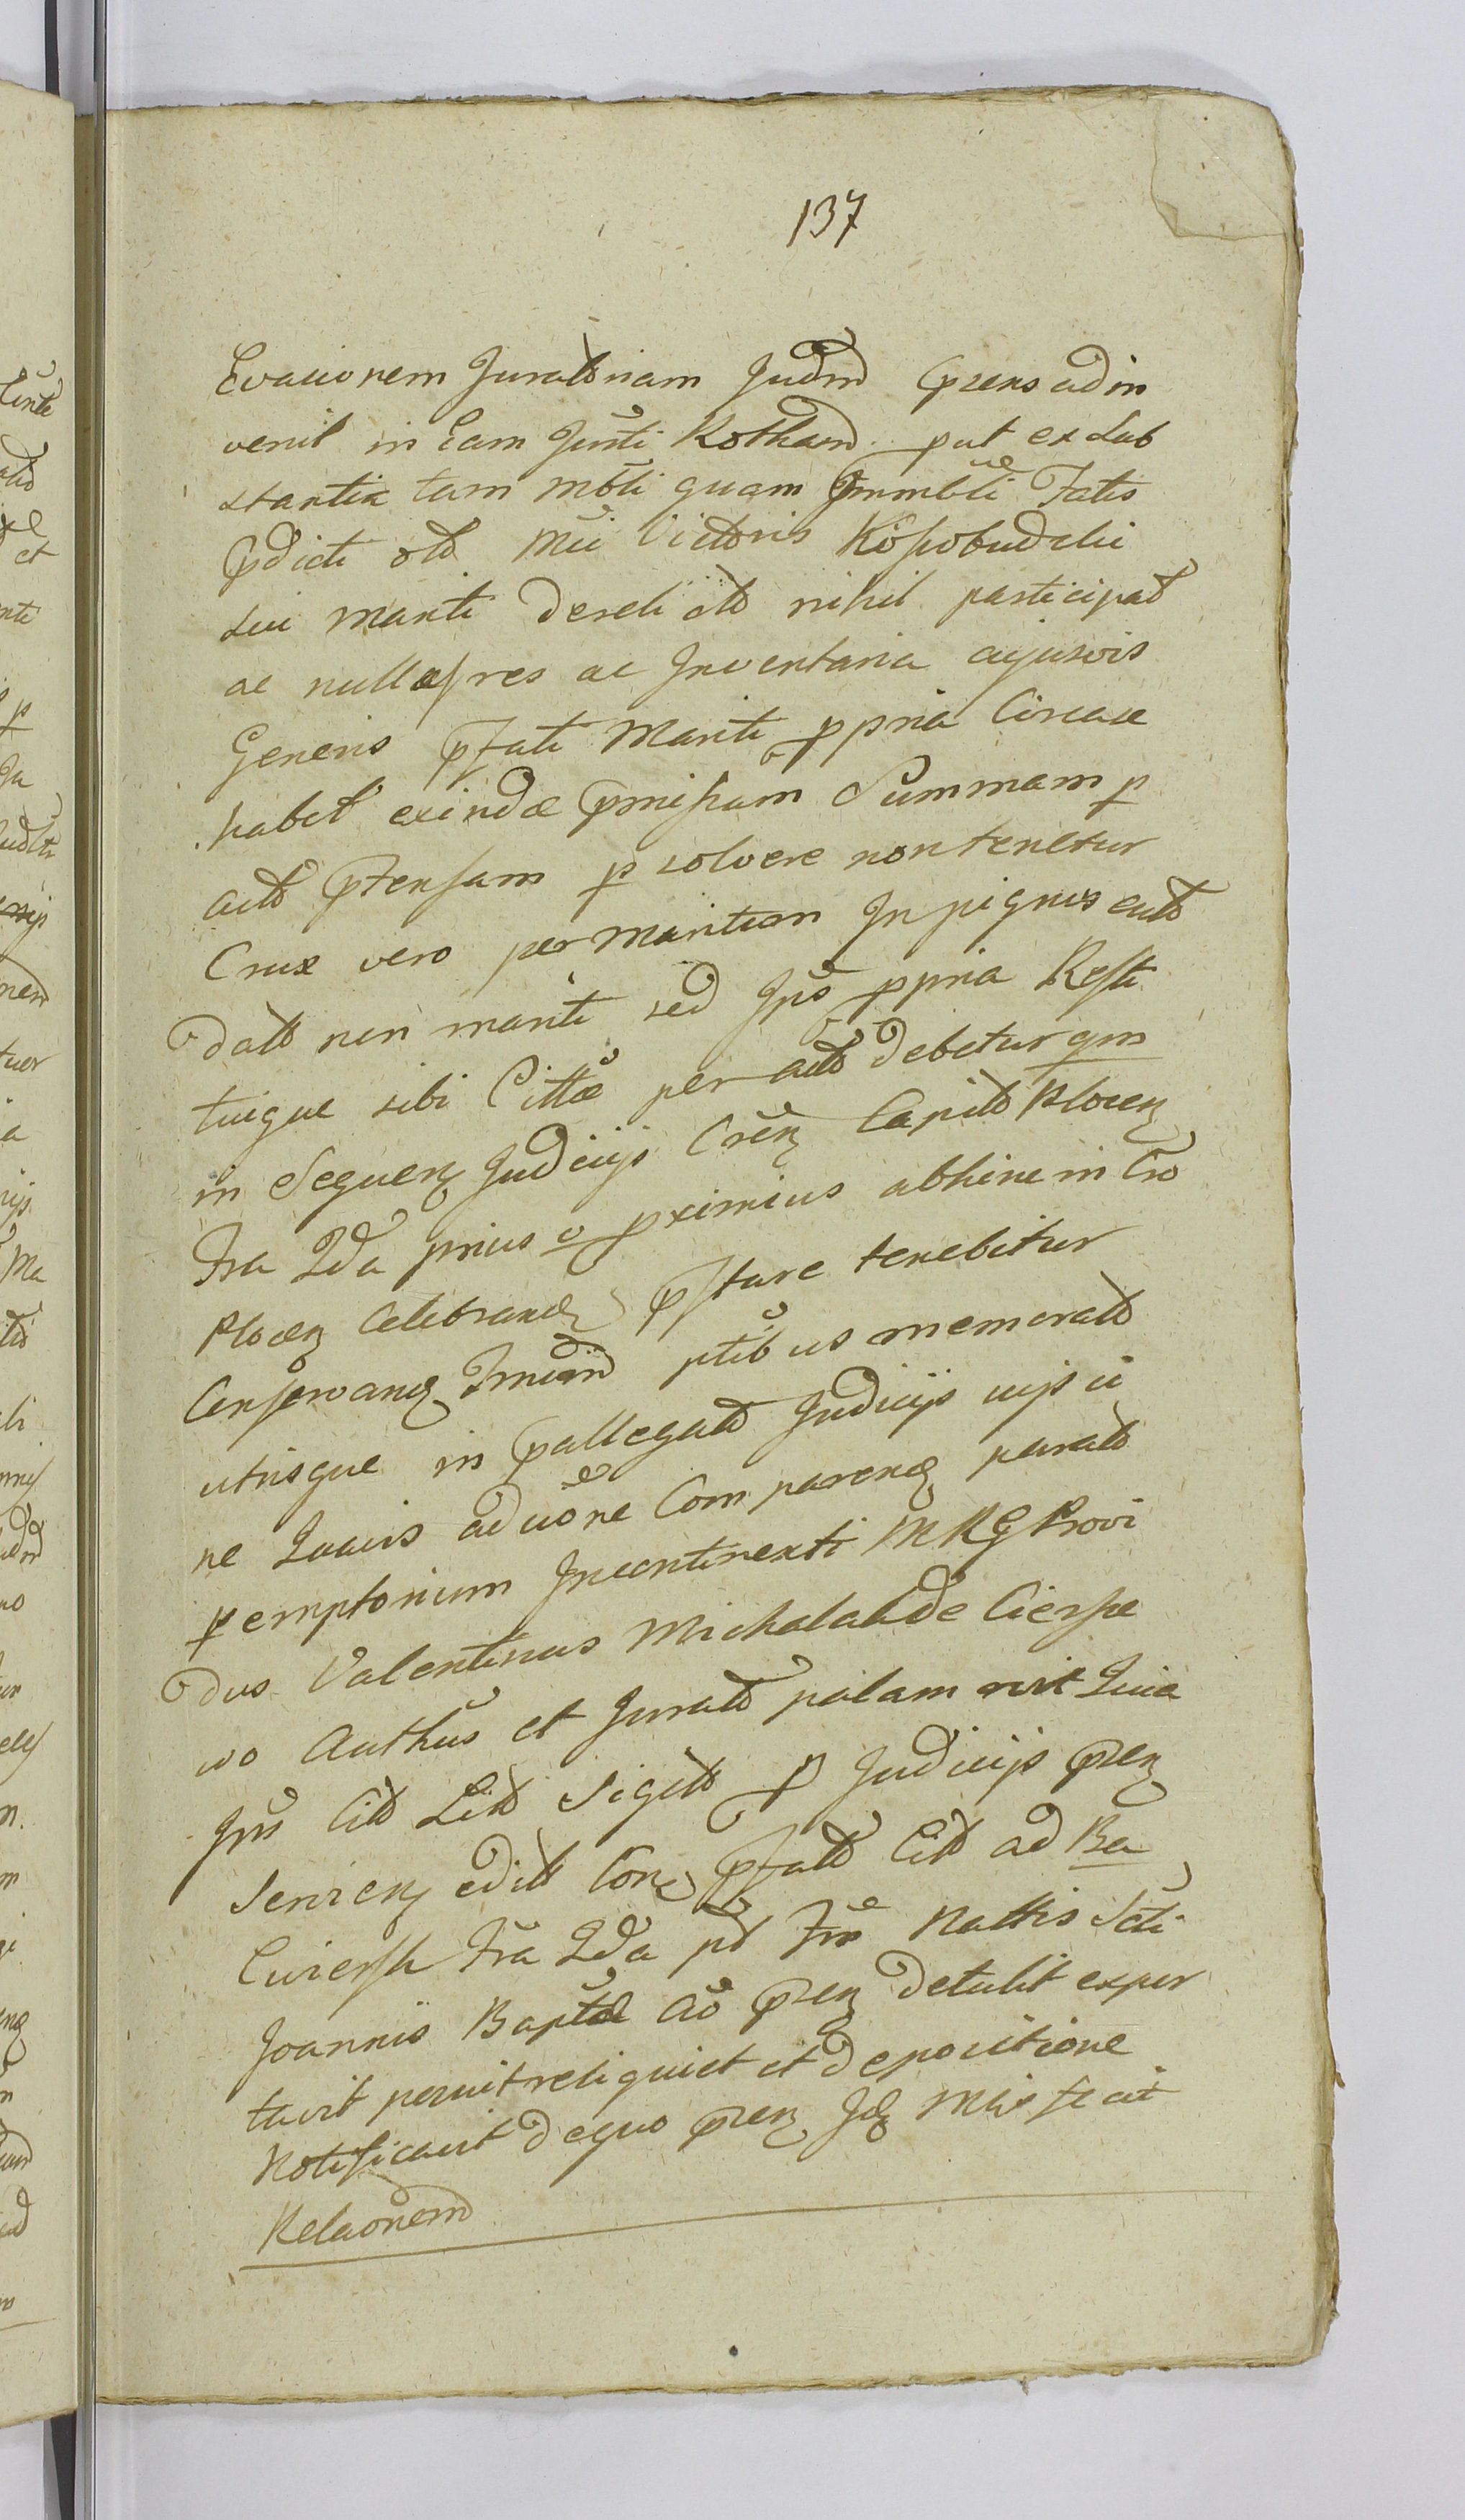 137
Evasionem Juratoriam Judm Prens adin
venit in Eam Jurti Rotham put ex Sub
stantia tam Mbli quam Immbli Fatis
Pdicti olo Mci Victoris Kossobudzki
sui mariti derelicto nihil participat
ac nullas res ac Inventaria cujusvis
Generis pfati Mariti ppria Circa se
habet exinde pmissam Summam p
acto ptensam p solvere non tenetur
Crux vero per Maritum In pignus acto
dato non mariti sed Jps ppria Resti
tuique sibi Cittae per acto debetur qm
in Sequen Judicijs Cren Capit Plocen
Fra 2da prius et pximius abhinc in Cro
Plocen Celebrand pstare tenebitur
Conservand Trmum ptibus memorato
utrisque in pallegato Judicijs
ne Quavis aduone Comparend parato
peremptorium Incontinenti MRG Provi
dus Valentinus Michalak de Cierpe
wo Authus et Jurato palam rvit Quia
Jps Cit Lit Sigill p Judicijs pren
Servien edit Con pfato Cit ad Ba
Curiensh Fra 2da pt Frm Nattis Scti
Joannis Baptae Ao pren detulit expor
tavit posuit reliquit et depositione
Notificavit dequo pren Jd Mis fecit
Relaonem